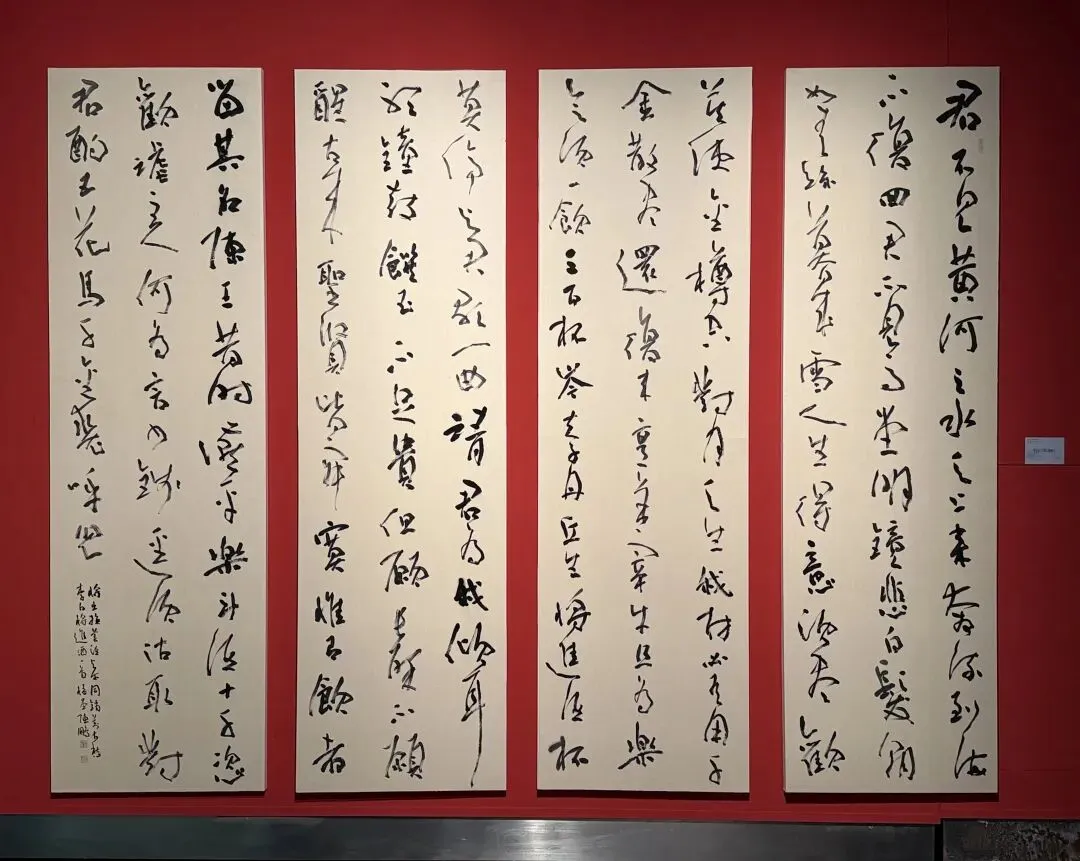 君不見黃河之水天上來奔流到海
不復回君不見高堂明鏡悲白髮朝
如青絲暮成雪人生得意須盡歡
莫使金樽空對月天生我材必有用千
金散盡還復來烹羊宰牛且為樂
會須一飲三百杯岑夫子丹丘生將進酒杯
莫停與君歌一曲請君為我傾耳
聽鐘鼓饌玉不足貴但願長醉不願
醒古來聖賢皆寂寞惟有飲者
留其名陳王昔時讌平樂斗酒十千恣
歡謔主人何為言少錢逕須沽取對
君酌五花馬千金裘呼兒
將出換美酒與爾同銷萬古愁
李白將進酒一首